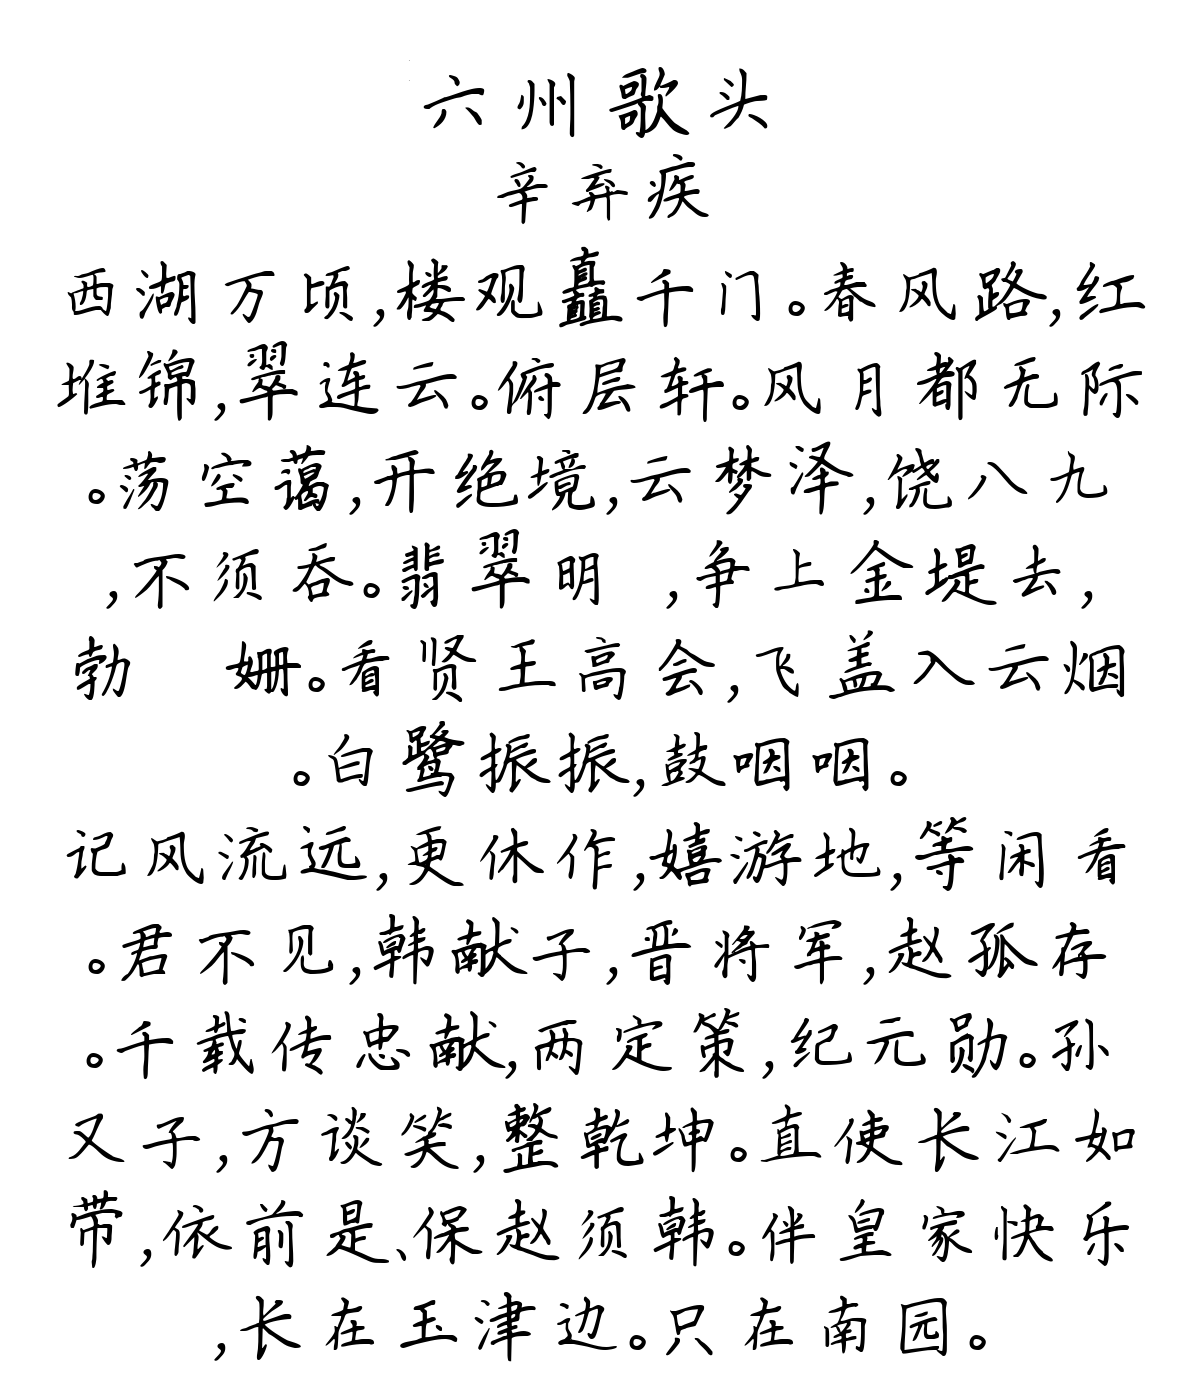 六州歌头
辛弃疾
西湖万顷,楼观矗千门。春风路,红
堆锦,翠连云。俯层轩。风月都无际
。荡空蔼,开绝境,云梦泽,饶八九
,不须吞。翡翠明 ,争上金堤去,
勃 姗。看贤王高会,飞盖入云烟
。白鹭振振,鼓咽咽。
记风流远,更休作,嬉游地,等闲看
。君不见,韩献子,晋将军,赵孤存
。千载传忠献,两定策,纪元勋。孙
又子,方谈笑,整乾坤。直使长江如
带,依前是、保赵须韩。伴皇家快乐
,长在玉津边。只在南园。